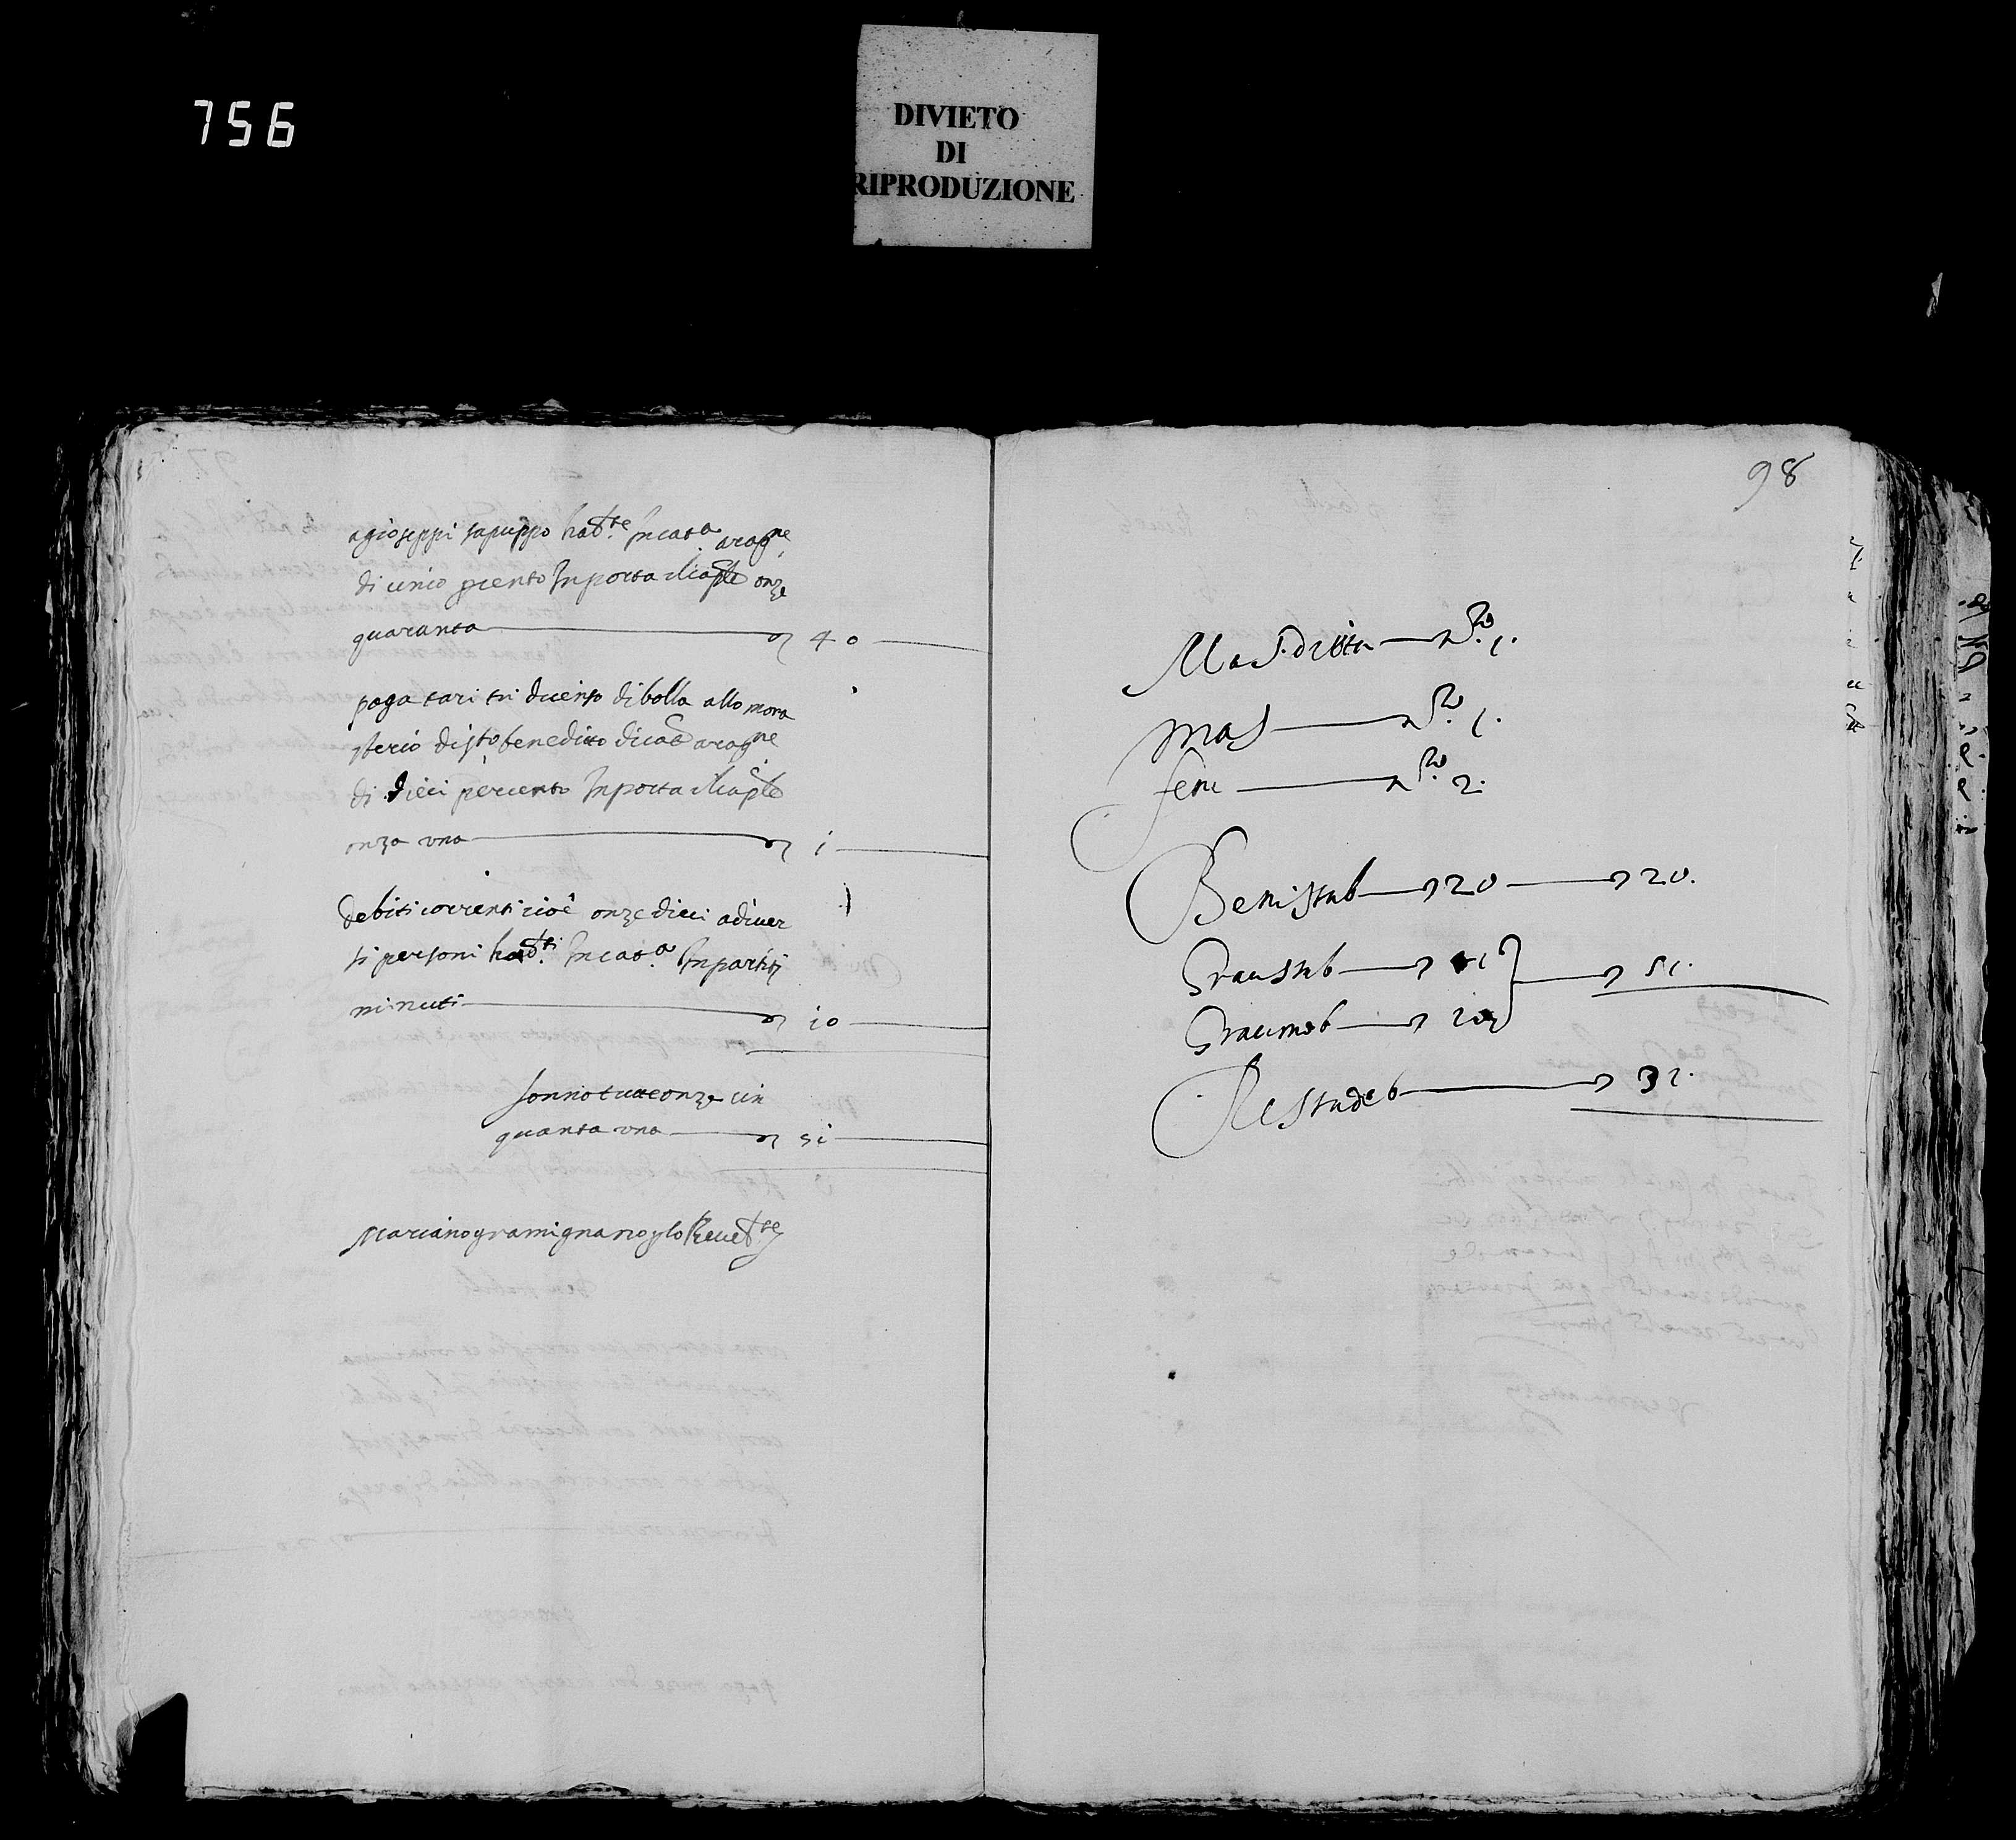 756
DIVIETO
DI
RIPRODUZIONE
agioseppi sapuppo hab.te In cat.a arag.ne
di cinco percento Inporta il cap.le onze
quaranta 40
paga tari tri di censo di bolla allo mona
sterio di s.to benedicto di cat.a arag.ne
di dieci percento Inporta il cap.le
onza una 1
debiti correnti cioè onze dieci a diver
si persони hab.ti In cat.a In partiti
minuti 10
sonno tucte onze cin
quanta una 51
Mariano gramignano p lo Revet.te
98
Mas. di ditta n.ro 1.
mas n.ro 1.
fem n.ro 2.
Beni stab 20 20.
Grau stab 41 51.
Grau mob 10
Resta deb 31.